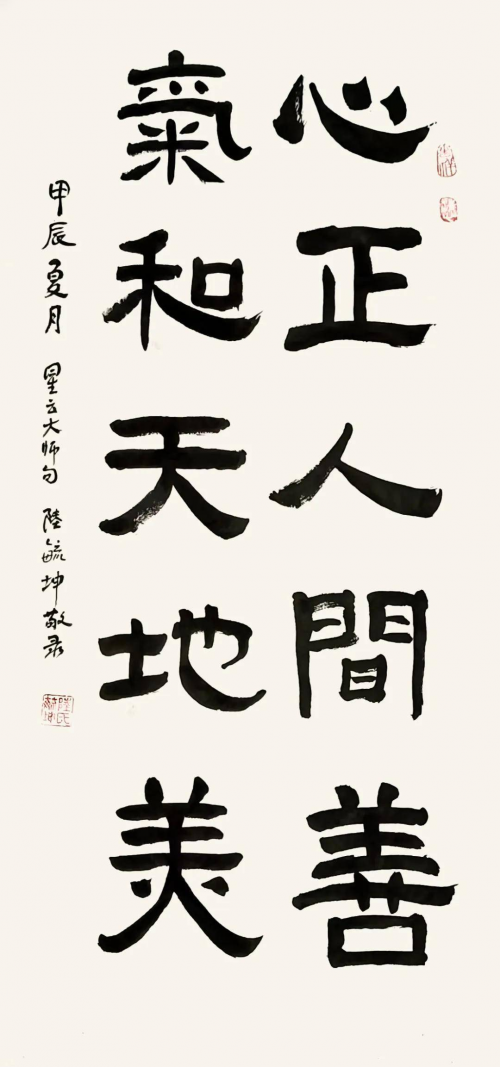 心正人間善
氣和天地美
甲辰夏月 星云大师句 陸毓坤敬录